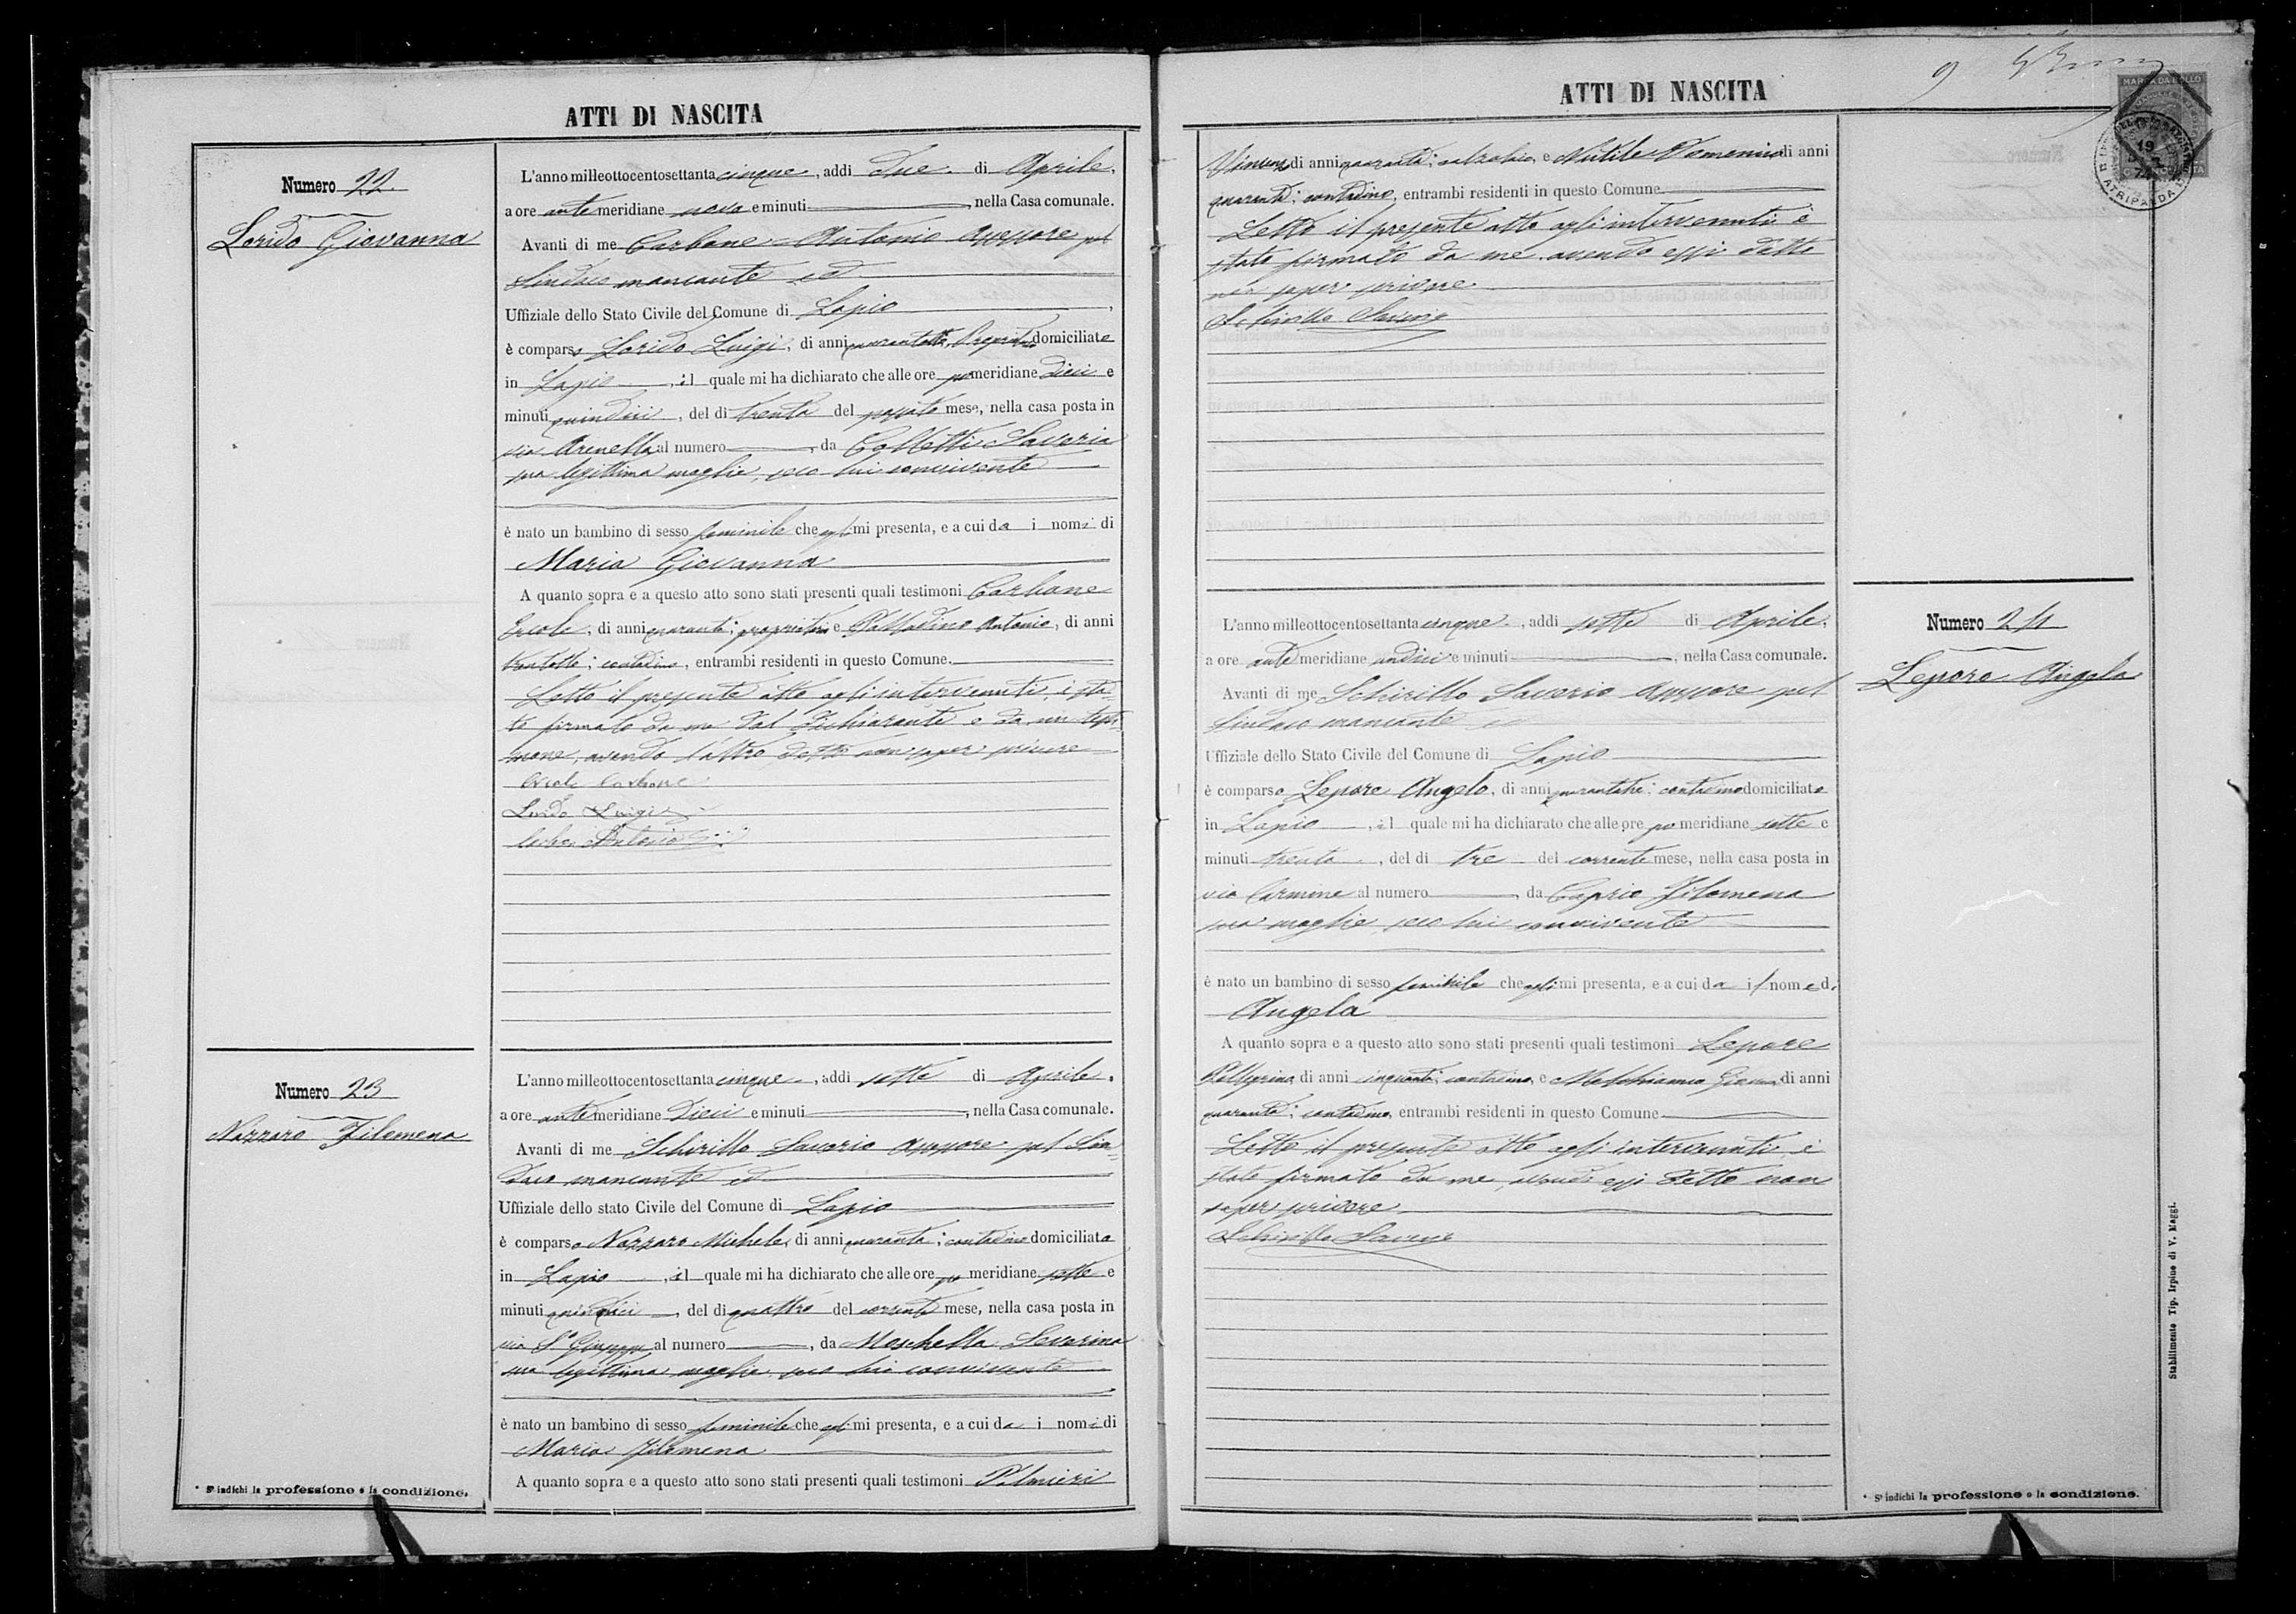 ATTI DI NASCITA
Numero 22
Lorido Giovanna
L'anno milleottocentosettanta cinque, addì due di Aprile,
a ore ante meridiane nove e minuti, nella Casa comunale.
Avanti di me Carbone Antonio Assessore pel
Sindaco mancante ed
Uffiziale dello Stato Civile del Comune di Lapio,
è comparso Lorido Luigi, di anni quarantotto, domiciliato
in Lapio, il quale mi ha dichiarato che alle ore pomeridiane dieci e
minuti quindici, del dì trenta del passato mese, nella casa posta in
via Arenella al numero, da Colletti Saveria
sua legittima moglie, seco lui convivente
è nato un bambino di sesso feminile che egli mi presenta, e a cui da i nomi di
Maria Giovanna
A quanto sopra e a questo atto sono stati presenti quali testimoni Carbone
Ercole, di anni quaranta, proprietario e Palladino Antonio, di anni
contadino, entrambi residenti in questo Comune.
Letto il presente atto agli intervenuti, è sta-
to firmato da me dal dichiarante e da un testi-
mone, avendo l'altro detto non saper scrivere
Ercole Carbone
Lorido Luigi
Antonio
Numero 23
Nazzaro Filomena
L'anno milleottocentosettanta cinque, addì sette di Aprile,
a ore ante meridiane dieci e minuti, nella Casa comunale.
Avanti di me Schirillo Saverio Assessore pel Sin-
daco mancante ed
Uffiziale dello stato Civile del Comune di Lapio
è comparso Nazzaro Michele, di anni quaranta, contadino domiciliato
in Lapio, il quale mi ha dichiarato che alle ore po meridiane sette e
minuti quindici, del dì quattro del corrente mese, nella casa posta in
via S. Giuseppe al numero, da Moschella Severina
sua legittima moglie, seco lui convivente
è nato un bambino di sesso feminile che egli mi presenta, e a cui da i nomi di
Maria Filomena
A quanto sopra e a questo atto sono stati presenti quali testimoni Palmieri
* Si indichi la professione o la condizione.
ATTI DI NASCITA
9
MARCA DA BOLLO
ATRIPALDA
di anni quaranta, calzolaio, e Nutile Domenico di anni
quaranta, contadino, entrambi residenti in questo Comune
Letto il presente atto agli intervenuti è
stato firmato da me avendo essi detto
non saper scrivere
Schirillo Saverio
L'anno milleottocentosettanta cinque, addì sette di Aprile,
a ore ante meridiane undici e minuti, nella Casa comunale.
Avanti di me Schirillo Saverio Assessore pel
Sindaco mancante ed
Uffiziale dello Stato Civile del Comune di Lapio
è comparso Lepore Angelo, di anni quarantatre, contadino domiciliato
in Lapio, il quale mi ha dichiarato che alle ore po meridiane sette e
minuti trenta, del dì tre del corrente mese, nella casa posta in
via Carmine al numero, da Caprio Filomena
sua moglie seco lui convivente
è nato un bambino di sesso feminile che egli mi presenta, e a cui da il nome di
Angela
A quanto sopra e a questo atto sono stati presenti quali testimoni Lepore
Pellegrino, di anni cinquanta, contadino, e di anni
quaranta, contadino, entrambi residenti in questo Comune
Letto il presente atto agli intervenuti, è
stato firmato da me, avendo essi detto non
saper scrivere
Schirillo Saverio
Numero 24
Lepore Angela
* Si indichi la professione o la condizione.
Stabilimento Tip. Irpino di V. Maggi.